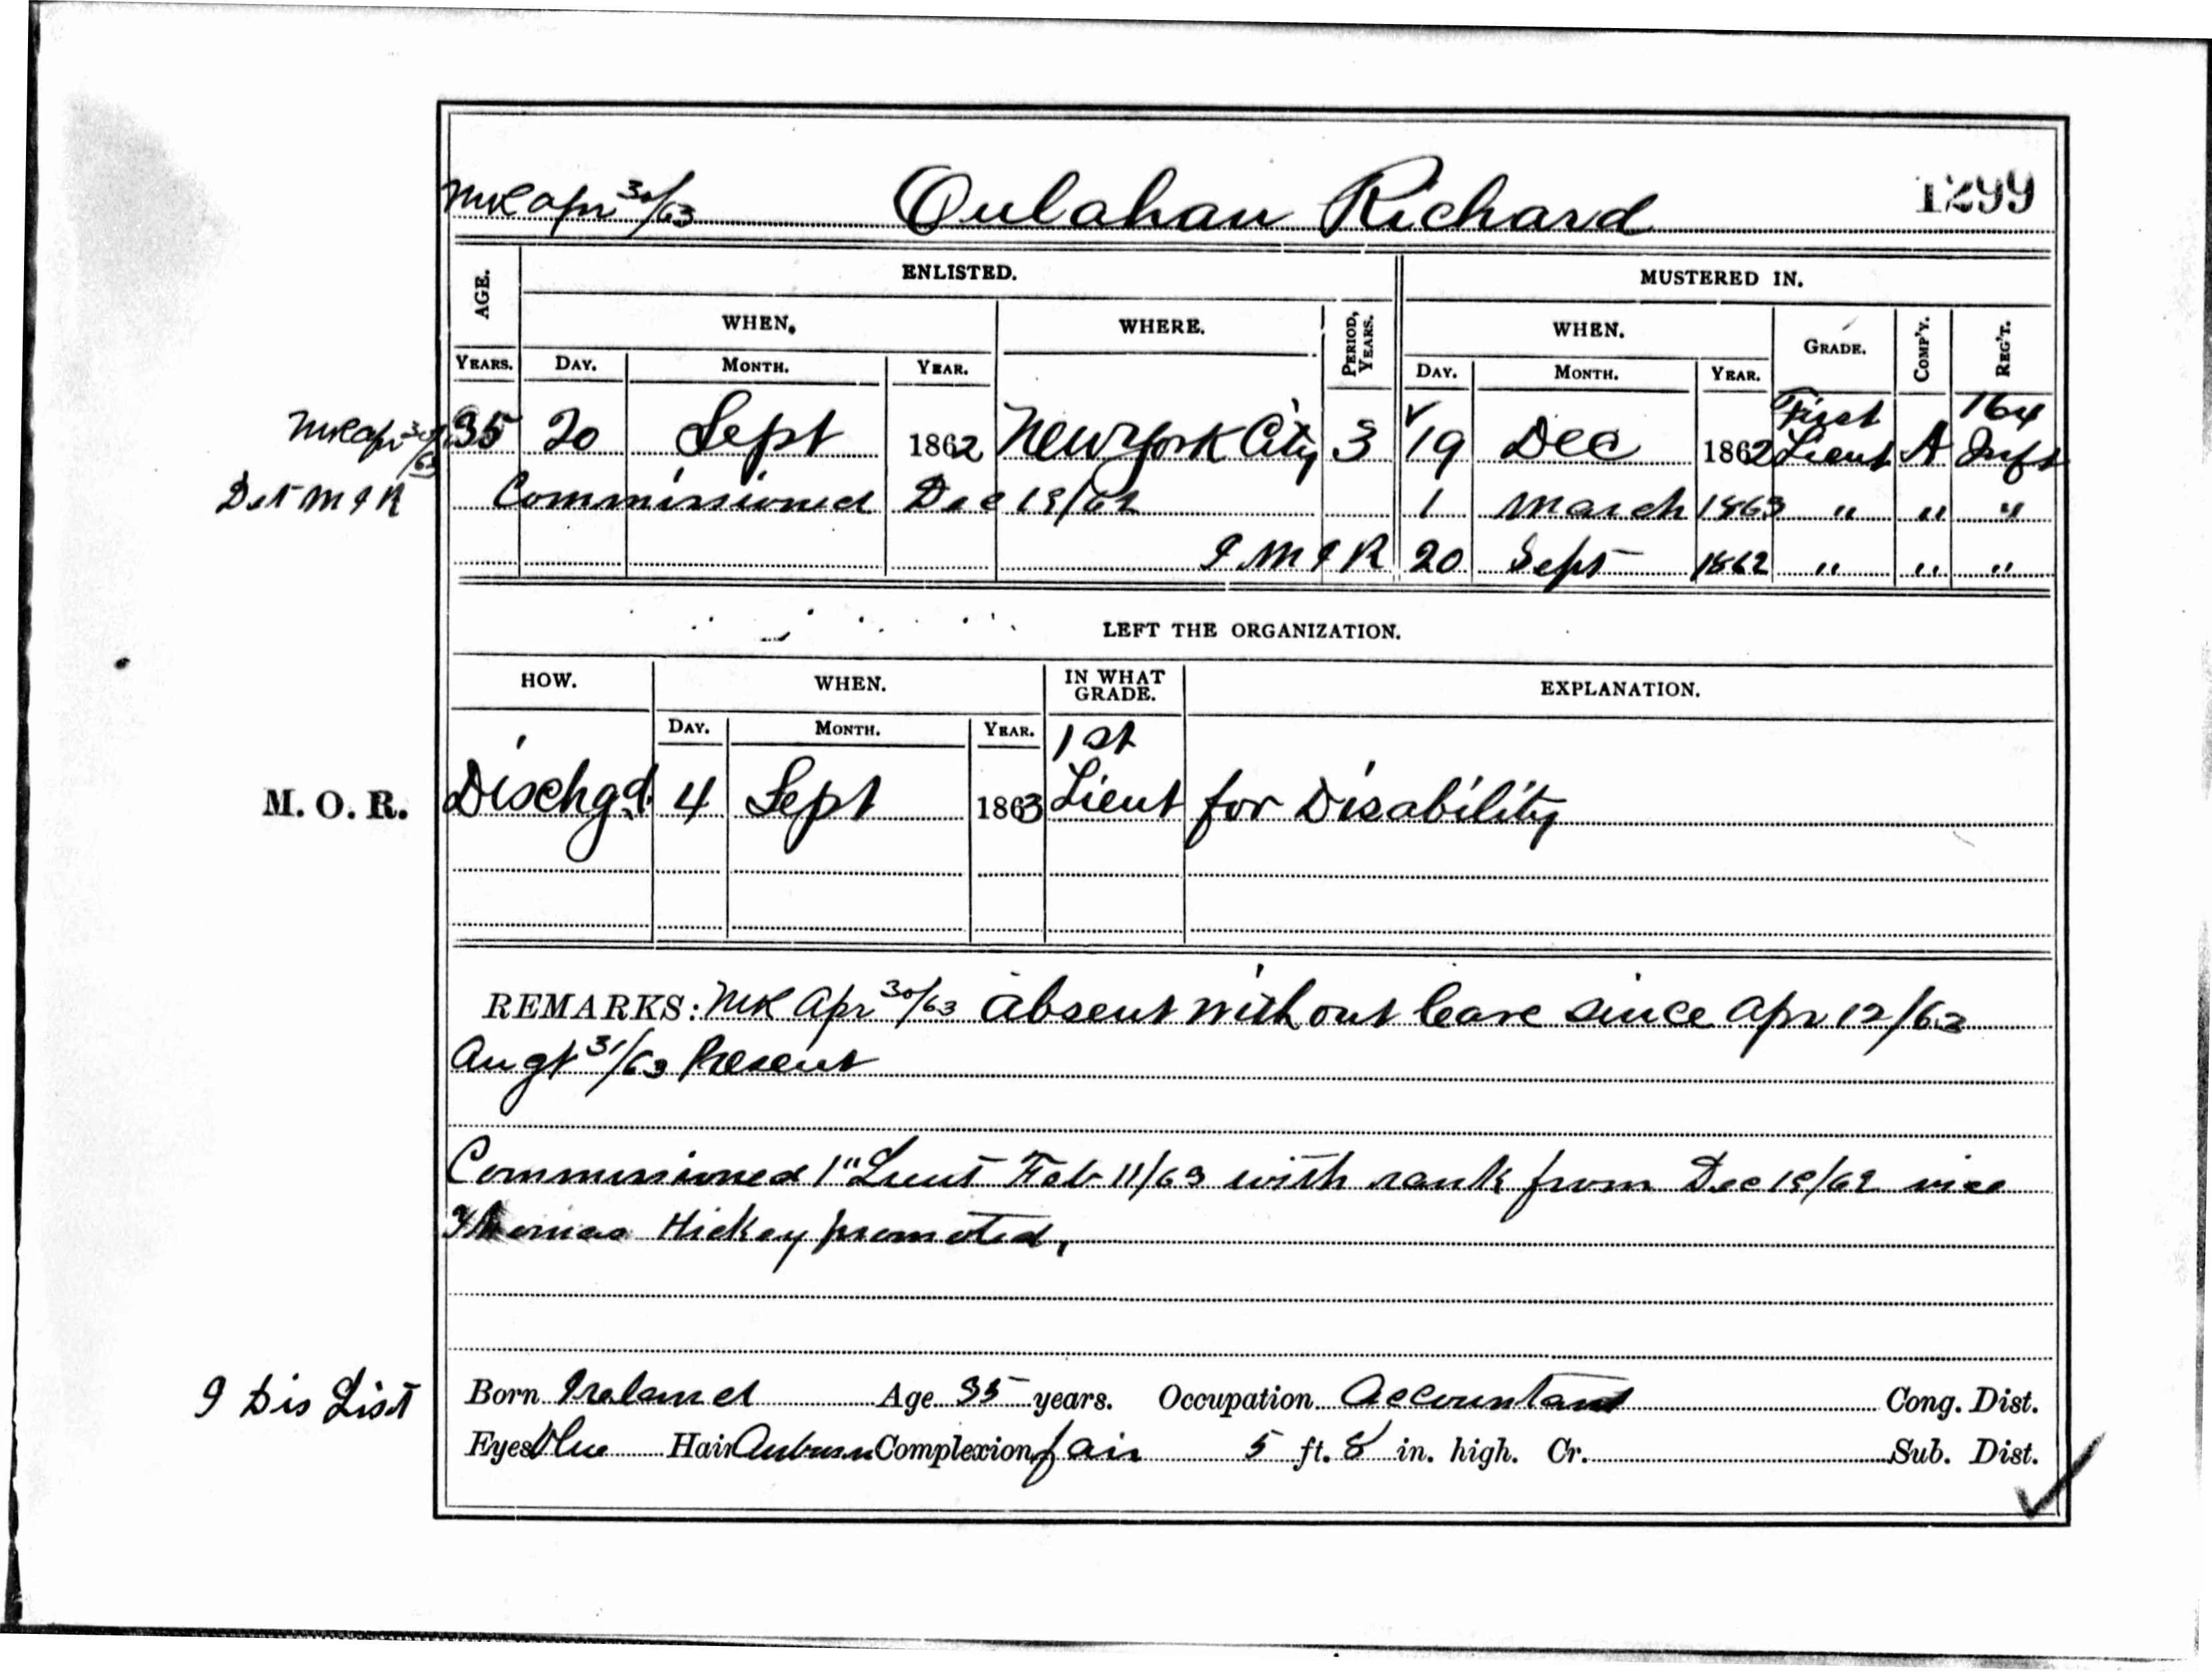 MR Apr 30/63 Oulahan Richard 1299
AGE. ENLISTED. MUSTERED IN.
WHEN. WHERE. PERIOD, YEARS. WHEN. GRADE. COMP'Y. REG'T.
YEARS. DAY. MONTH. YEAR. DAY. MONTH. YEAR.
First 164
MR Apr 30/63 35 20 Sept 1862 New York City 3 19 Dec 1862 Lieut A Inft
Det M I R Commissioned Dec 19/62 1 March 1863 " " "
I M I R 20 Sept 1862 " " "
LEFT THE ORGANIZATION.
HOW. WHEN. IN WHAT GRADE. EXPLANATION.
DAY. MONTH. YEAR.
1st
M. O. R. Dischgd. 4 Sept 1863 Lieut for Disability
REMARKS: MR Apr 30/63 absent without leave since Apr 12/63
Augt 31/63 Present
Commissioned 1" Lieut Feb 11/63 with rank from Dec 19/62 vice
Thomas Hickey promoted.
9 Dis List Born Ireland Age 35 years. Occupation Accountant Cong. Dist.
Eyes blue Hair Auburn Complexion fair 5 ft. 8 in. high. Cr. Sub. Dist.